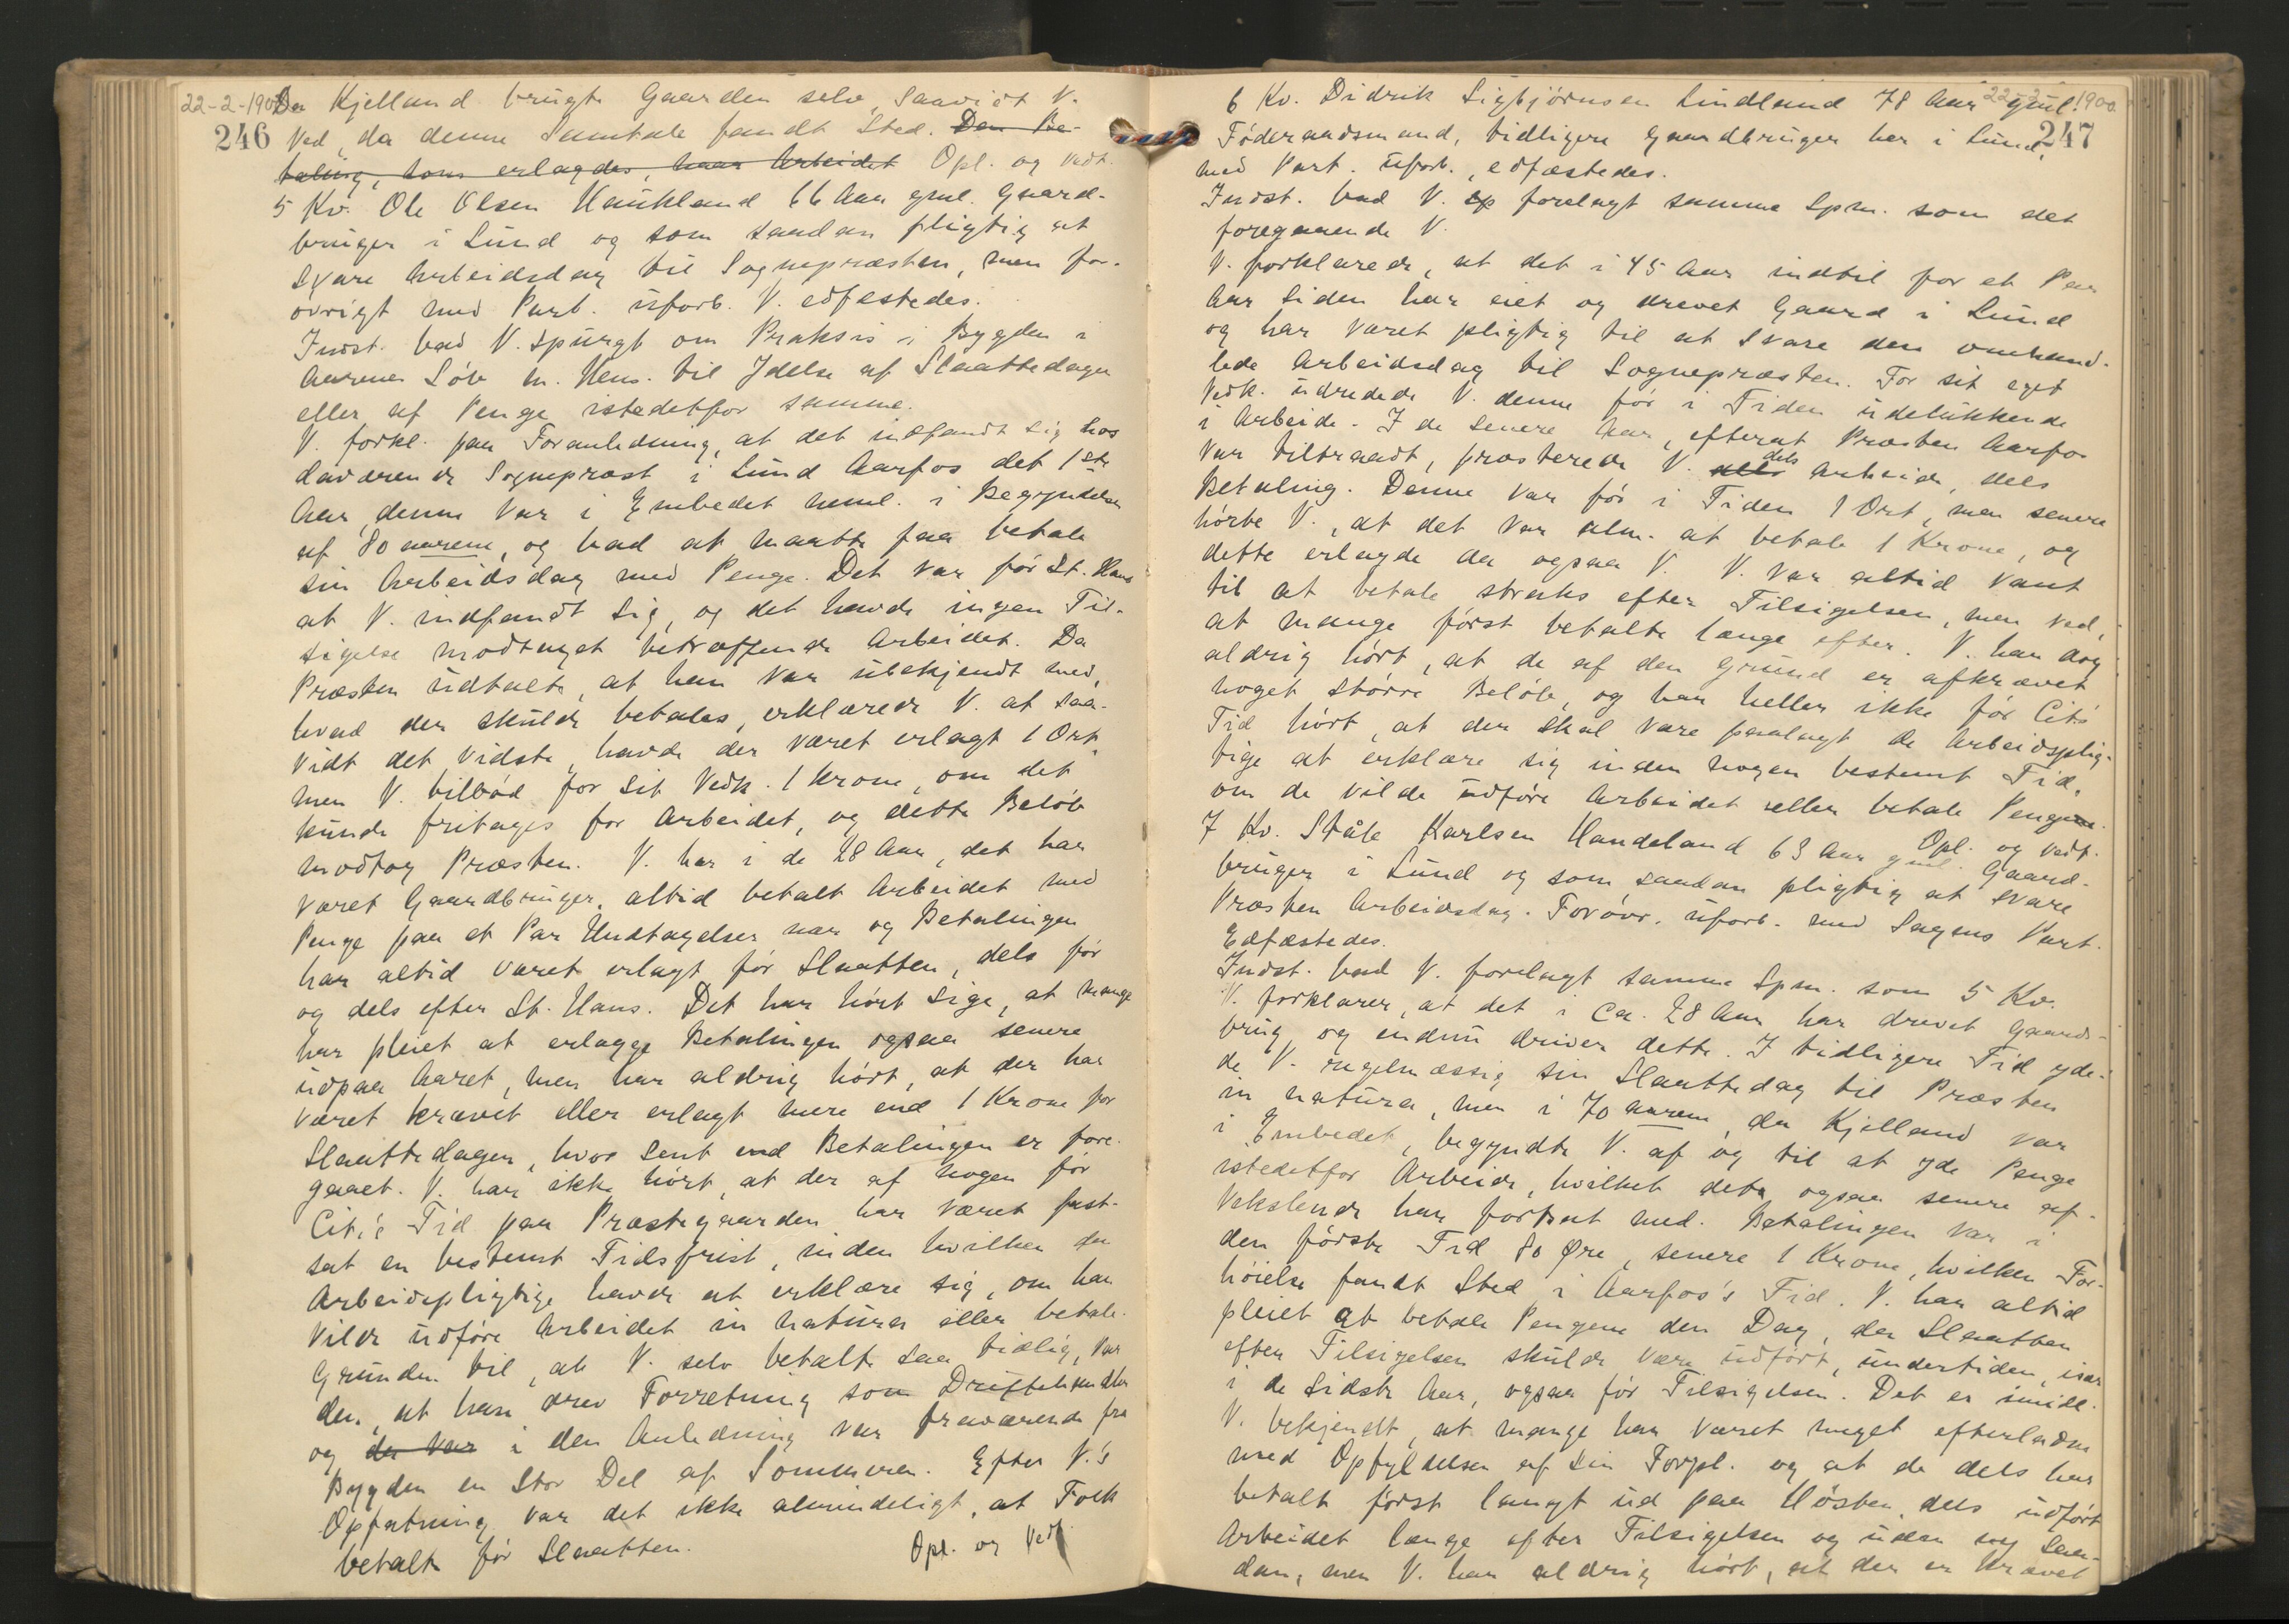 22-2-1900
246
Da Kjelland brugte Gaarden selv, saavidt V.
ved, da denne Samtale fandt Sted. Den Be-
taling, som erlagdes, har Arbeidet Opl. og vedt.
5 Kv. Ole Olsen Haukland 66 Aar gml. Gaard-
bruger i Lund og som saadan pligtig at
svare Arbeidsdag til Sognepræsten, men for-
øvrigt med Part. uforb. V. edfestedes.
Indst. bad V. spurgt om Praksis i Bygden i
Aarenes Løb m. Hens. til Ydelse af Slaattedage
eller af Penge istedetfor samme.
V. forkl. paa Foranledning, at det indfandt sig hos
daværende Sognepræst i Lund Aarfos det 1ste
Aar, denne var i Embedet neml. i Begyndelsen
af 80 aarene, og bad at maatte faa betale
sin Arbeidsdag med Penge. Det var før St. Hans
at V. indfandt sig, og det havde ingen Til-
sigelse modtaget betræffende Arbeidet. Da
Præsten udtalte, at han var ubekjendt med,
hvad der skulde betales, erklærede V. at saa-
vidt det vidste, havde der været erlagt 1 Ort,
men V. tilbød for sit Vedk. 1 Krone, om det
kunde fritages for Arbeidet, og dette Beløb
modtog Præsten. V. har i de 28 Aar, det har
været Gaardbruger, altid betalt Arbeidet med
Penge paa et Par Undtagelser nær og Betalingen
har altid været erlagt før Slaatten, dels før
og dels efter St. Hans. Det har hørt sige, at mange
har pleiet at erlægge Betalingen ogsaa senere
udpaa Aaret, men har aldrig hørt, at der har
været krævet eller erlagt mere end 1 Krone for
Slaattedagen, hvor sent end Betalingen er fore-
gaaet. V. har ikke hørt, at der af nogen før
Cit.s Tid paa Præstegaarden har været fast-
sat en bestemt Tidsfrist, inden hvilken den
Arbeidspligtige havde at erklære sig, om han
vilde udføre Arbeidet in natura eller betale.
Grunden til, at V. selv betalte saa tidlig, var
den, at han drev Forretning som Driftehandler
og der var i den Anledning var fraværende fra
Bygden en stor Del af Sommeren. Efter V.'s
Opfatning var det ikke almindeligt, at Folk
betalte før Slaatten. Opl. og Vedt.
22-2-1900
247
6 Kv. Didrik Sigbjørnsen Lindland 78 Aar gml.
Føderaadsmand, tidligere Gaardbruger her i Lund,
med Part. uforb., edfæstedes.
Indst. bad V. forelagt samme Spm. som det
foregaaende V.
V. forklarede, at det i 45 Aar indtil for et Par
Aar siden har eiet og drevet Gaard i Lund
og har været pligtig til at svare den omhand-
lede Arbeidsdag til Sognepræsten. For sit eget
Vedk. udredede V. denne før i Tiden udelukkende
i Arbeide. I de senere Aar, efterat Præsten Aarfos
var tiltraadt, præsterede V. dels Arbeide, dels
Betaling. Denne var før i Tiden 1 Ort, men senere
hørte V., at det var alm. at betale 1 Krone, og
dette erlagde da ogsaa V. V. var altid vant
til at betale straks efter Tilsigelsen, men ved,
at mange først betalte længe efter. V. har dog
aldrig hørt, at de af den Grund er afkrævet
noget større Beløb, og har heller ikke før Cit.s
Tid hørt, at der skal være paalagt de Arbeidsplig-
tige at erklære sig inden nogen bestemt Tid,
om de vilde udføre Arbeidet eller betale Pengene.
Opl. og vedt.
7 Kv. Ståle Karlsen Handeland 63 Aar gml. Gaard-
bruger i Lund og som saadan pligtig at svare
Præsten Arbeidsdag. Forøvr. uforb. med Sagens Part.
Edfæstedes.
Indst. bad V. forelagt samme Spm. som 5 Kv.
V. forklarer, at det i ca. 28 Aar har drevet Gaards-
brug, og endnu driver dette. I tidligere Tid yde-
de V. regelmæssig sin Slaattedag til Præsten
in natura, men i 70 aarene, da Kjelland var
i Embedet, begyndte V. af og til at yde Penge
istedetfor Arbeide, hvilket dette ogsaa senere af-
vekslende har fortsat med. Betalingen var i
den første Tid 80 Øre, senere 1 Krone, hvilken For-
høielse fandt Sted i Aarfos's Tid. V. har altid
pleiet at betale Pengene den Dag, da Slaatten
efter Tilsigelsen skulde være udført, undertiden, især
i de sidste Aar, ogsaa før Tilsigelsen. Det er imidl.
V. bekjendt, at mange har været meget efterladne
med Opfyldelsen af sin Forpl. og at de dels har
betalt først langt ud paa Høsten, dels udført
Arbeidet længe efter Tilsigelsen og uden saa-
dan, men V. har aldrig hørt, at der er krævet